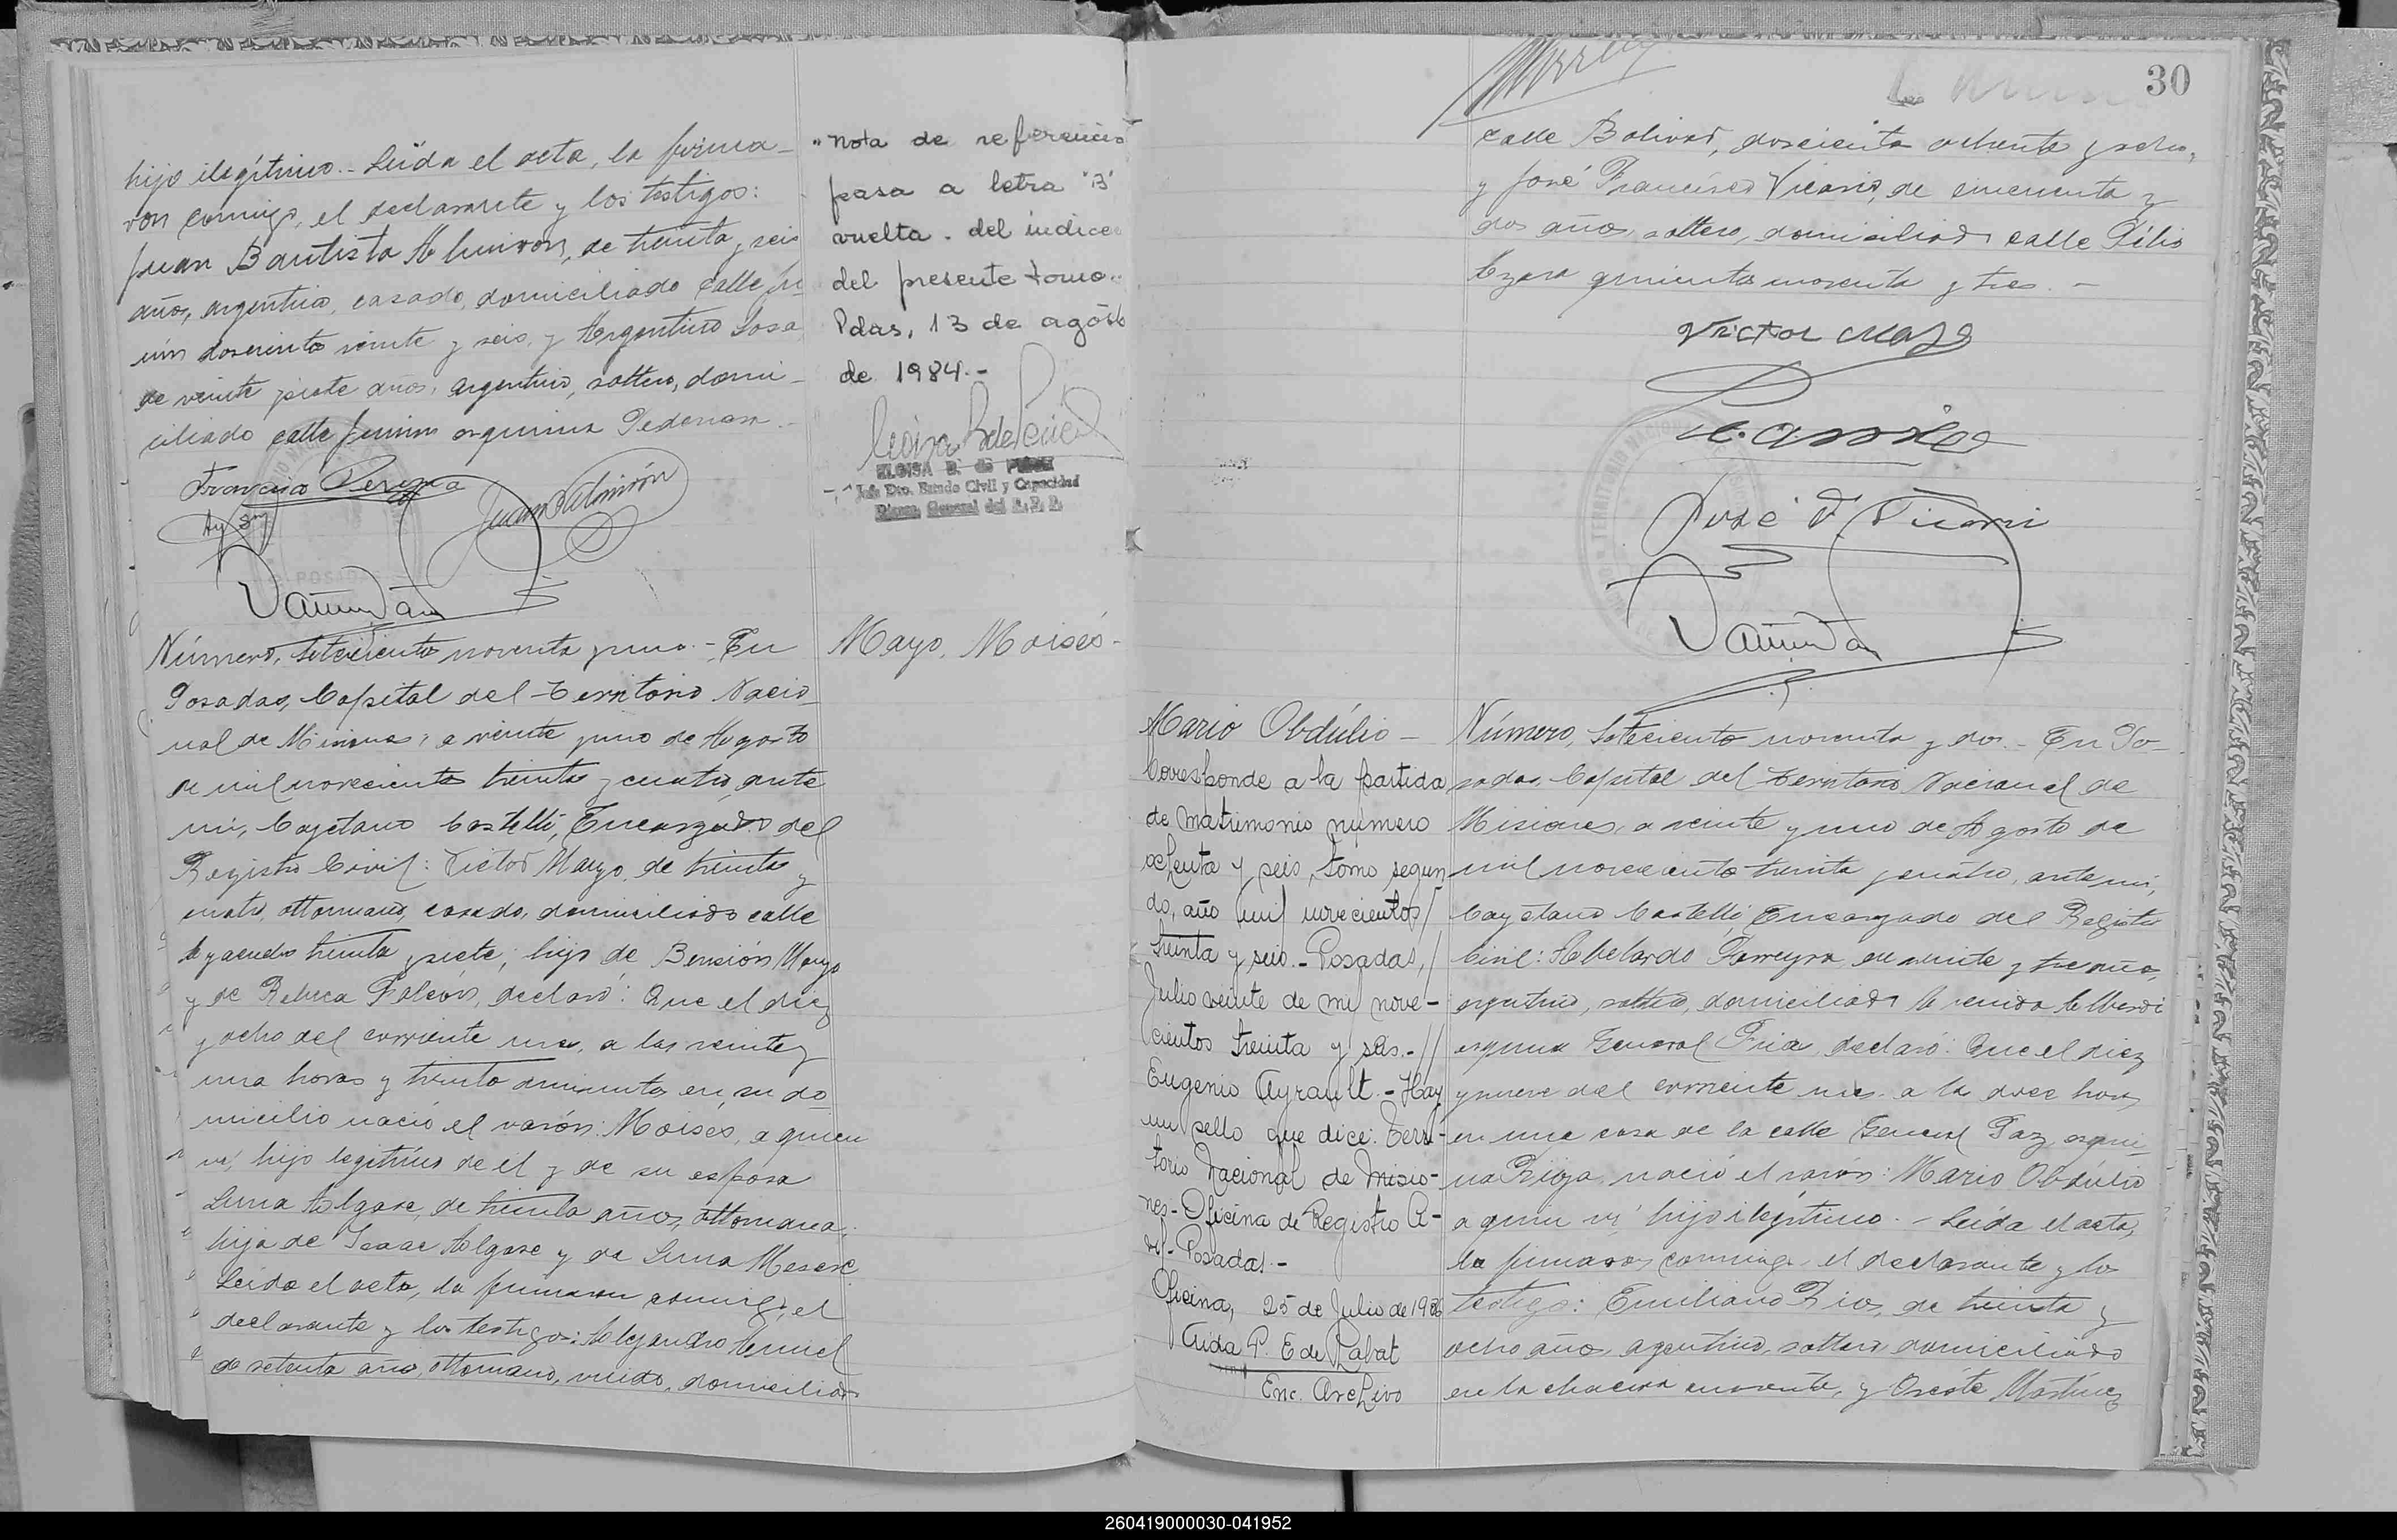 hijo ilegítimo.- Leída el acta, la firma-
ron conmigo, el declarante y los testigos:
Juan Bautista Almirón, de treinta y seis
años, argentino, casado, domiciliado calle Ju-
nín doscientos veinte y seis, y Argentino Sosa
de veinte y siete años, argentino, soltero, domi-
ciliado calle Junín esquina
Francisco Pereyra
Juan B Almirón
"Nota de referencia
pasa a letra "B"
vuelta. del indice
del presente tomo"
Pdas, 13 de agosto
de 1984.-
ELOISA B. de
Jefe Dto. Estado Civil y Capacidad
Direcc. General del R.P.P.
Mayo, Moisés-
Número, Setecientos noventa y uno.- En
Posadas, Capital del Territorio Nacio-
nal de Misiones, a veinte y uno de Agosto
de mil novecientos treinta y cuatro, ante
mí, Cayetano Castelli, Encargado del
Registro Civil: Victor Mayo, de treinta y
cuatro, ottomano, casado, domiciliado calle
Ayacucho treinta y siete, hijo de Bensión Mayo
y de Rebeca Falcón, declaró: Que el diez
y ocho del corriente mes, a las veinte y
una horas y treinta minutos, en su do-
micilio nació el varón: Moisés, a quien
ví, hijo legítimo de él y de su esposa
Luna Algase, de treinta años, ottomana,
hija de Isaac Algase y de Luna
Leída el acta, la firmaron conmigo, el
declarante y los testigos: Alejandro
de setenta años, ottomano, viudo, domiciliado
30
calle Bolivar, doscientos ochenta y ocho,
y José Francisco Vicario, de cincuenta y
dos años, soltero, domiciliado calle Félix
Azara quinientos noventa y tres.-
Victor Mayo
José F Vicari
Mario Obdúlio-
Corresponde a la partida
de matrimonio número
ochenta y seis, tomo segun
do, año mil novecientos
treinta y seis.- Posadas,
Julio veinte de mil nove-
cientos treinta y seis.-
Eugenio Ayrault.- Hay
un sello que dice: Terri-
torio Nacional de Misio-
nes- Oficina de Registro Ci-
vil- Posadas.-
Oficina, 25 de Julio de 1936
Aida P. E de Labat
Enc. Archivo
Número, Setecientos noventa y dos.- En Po-
sadas, Capital del Territorio Nacional de
Misiones, a veinte y uno de Agosto de
mil novecientos treinta y cuatro, ante mí,
Cayetano Castelli, Encargado del Registro
Civil: Abelardo Ferreyra, de veinte y tres años,
argentino, soltero, domiciliado Avenida Alberdi
esquina General declaró: Que el diez
y nueve del corriente mes, a las doce horas
en una casa de la calle General Paz, esqui-
na Rioja, nació el varón: Mario Obdúlio
a quien ví, hijo ilegítimo.- Leída el acta,
la firmaron conmigo, el declarante y los
testigos: Emiliano Rios, de treinta y
ocho años, argentino, soltero, domiciliado
en la chacra noventa, y Oreste Martínez
260419000030-041952